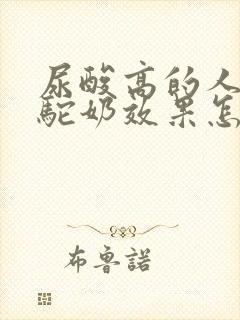 尿酸高的人
駝奶效果怎
布鲁諾